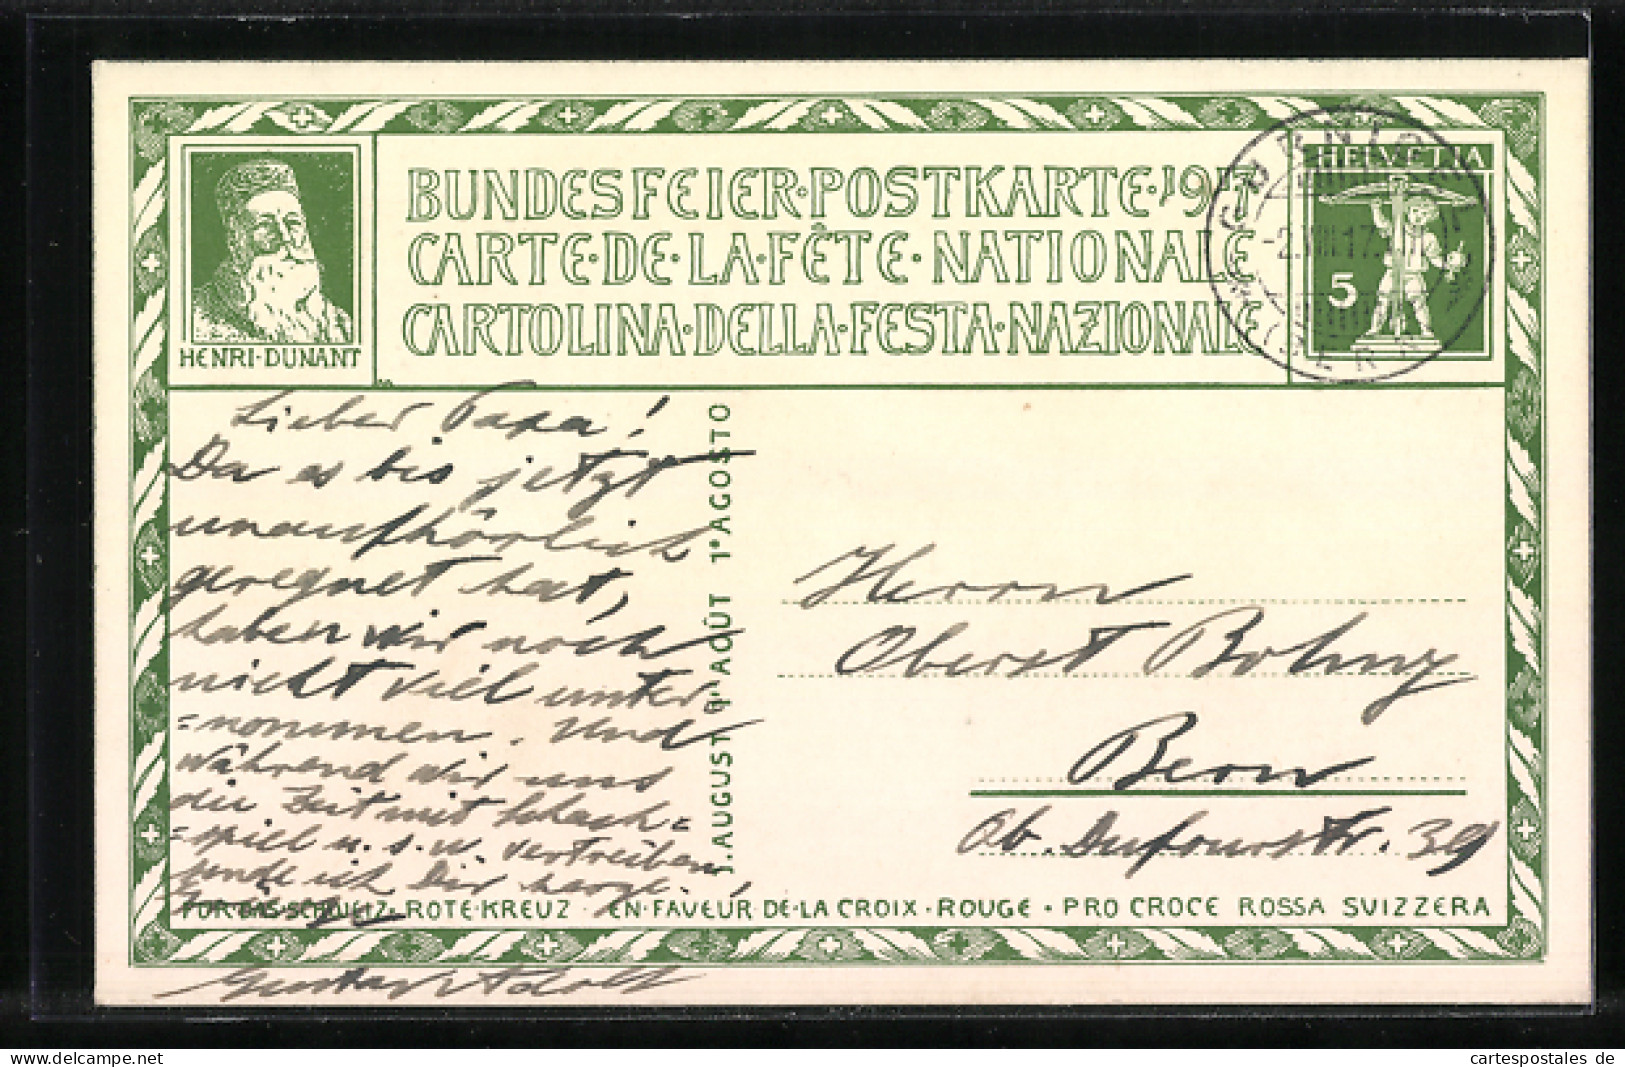 BUNDESFEIER·POSTKARTE·1917
CARTE·DE·LA·FÊTE·NATIONALE
CARTOLINA·DELLA·FESTA·NAZIONALE
HENRI·DUNANT
HELVETIA
5
GURNIGEL
-2.VIII.17.
(BERN)
Lieber Papa!
Da es bis jetzt
unaufhörlich
geregnet hat,
haben wir noch
nicht viel unter
=nommen. Und
während wir uns
die Zeit mit Schach=
=spiel u.s.w. vertreiben,
sende ich Dir herzl.
Gustav Adolf
1. AUGUST 1er AOÛT 1° AGOSTO
Herrn
Oberst Bohny
Bern
Ob. Dufourstr. 39
FÜR·DAS·SCHWEIZ·ROTE·KREUZ · EN·FAVEUR·DE·LA CROIX·ROUGE · PRO CROCE ROSSA SVIZZERA
www.cartespostales.de
cartespostales de